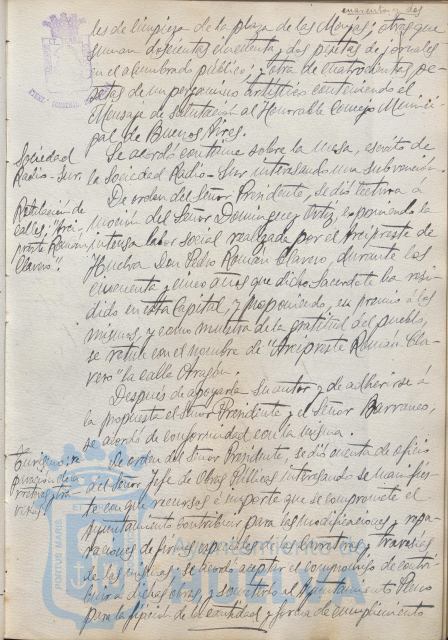 cuarenta y dos
les de limpieza de la plaza de las Monjas; otras que
suman doscientas cincuenta y dos pesetas de jornales
en el alumbrado público; y otra de cuatrocientas pe-
setas de un pergamino artístico conteniendo el
Mensaje de Salutación al Honorable Concejo Munici-
pal de Buenos Aires.
Sociedad
Radio-Sur.
Se acordó continúe sobre la mesa, escrito de
la Sociedad Radio-Sur interesando una subvención.
Rotulación de
calles, "Arci-
preste Román
Clavero".
De orden del Señor Presidente, se dió lectura a
moción del Señor Domínguez Ortiz, exponiendo la
intensa labor social realizada por el Arcipreste de
Huelva Don Pedro Román Clavero, durante los
cincuenta y cinco años que dicho Sacerdote ha resi-
dido en esta Capital, y proponiendo, en premio a los
mismos, y como muestra de la gratitud del pueblo,
se rotule con el nombre de "Arcipreste Román Cla-
vero" la calle Aragón.
Después de apoyarla su autor y de adherirse á
la propuesta el Señor Presidente y el Señor Barranco,
se acordó de conformidad con la misma.
De orden del Señor Presidente, se dió cuenta de oficio
del Señor Jefe de Obras Públicas interesando se manifies-
te con que recursos é importe que se compromete el
Ayuntamiento contribuir para las modificaciones y repa-
raciones de firmes especiales de las carreteras y travesías
de las mismas; se acordó aceptar el compromiso de contri-
buir a dichas obras, y someterlo al Ayuntamiento Pleno
para la fijación de la cantidad y forma de cumplimiento
PORTUS MARIS
Ayuntamiento de
HUELVA